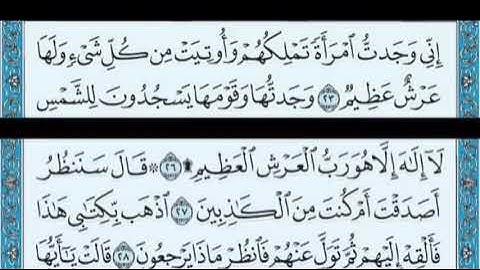 إِنِّي وَجَدتُّ ٱمْرَأَةً تَمْلِكُهُمْ وَأُوتِيَتْ مِن كُلِّ شَىْءٍ وَلَهَا
عَرْشٌ عَظِيمٌ ٢٣ وَجَدتُّهَا وَقَوْمَهَا يَسْجُدُونَ لِلشَّمْسِ
لَآ إِلَٰهَ إِلَّا هُوَ رَبُّ ٱلْعَرْشِ ٱلْعَظِيمِ ۩ ٢٦ ۞ قَالَ سَنَنظُرُ
أَصَدَقْتَ أَمْ كُنتَ مِنَ ٱلْكَٰذِبِينَ ٢٧ ٱذْهَب بِّكِتَٰبِى هَٰذَا
فَأَلْقِهْ إِلَيْهِمْ ثُمَّ تَوَلَّ عَنْهُمْ فَٱنظُرْ مَاذَا يَرْجِعُونَ ٢٨ قَالَتْ يَٰٓأَيُّهَا